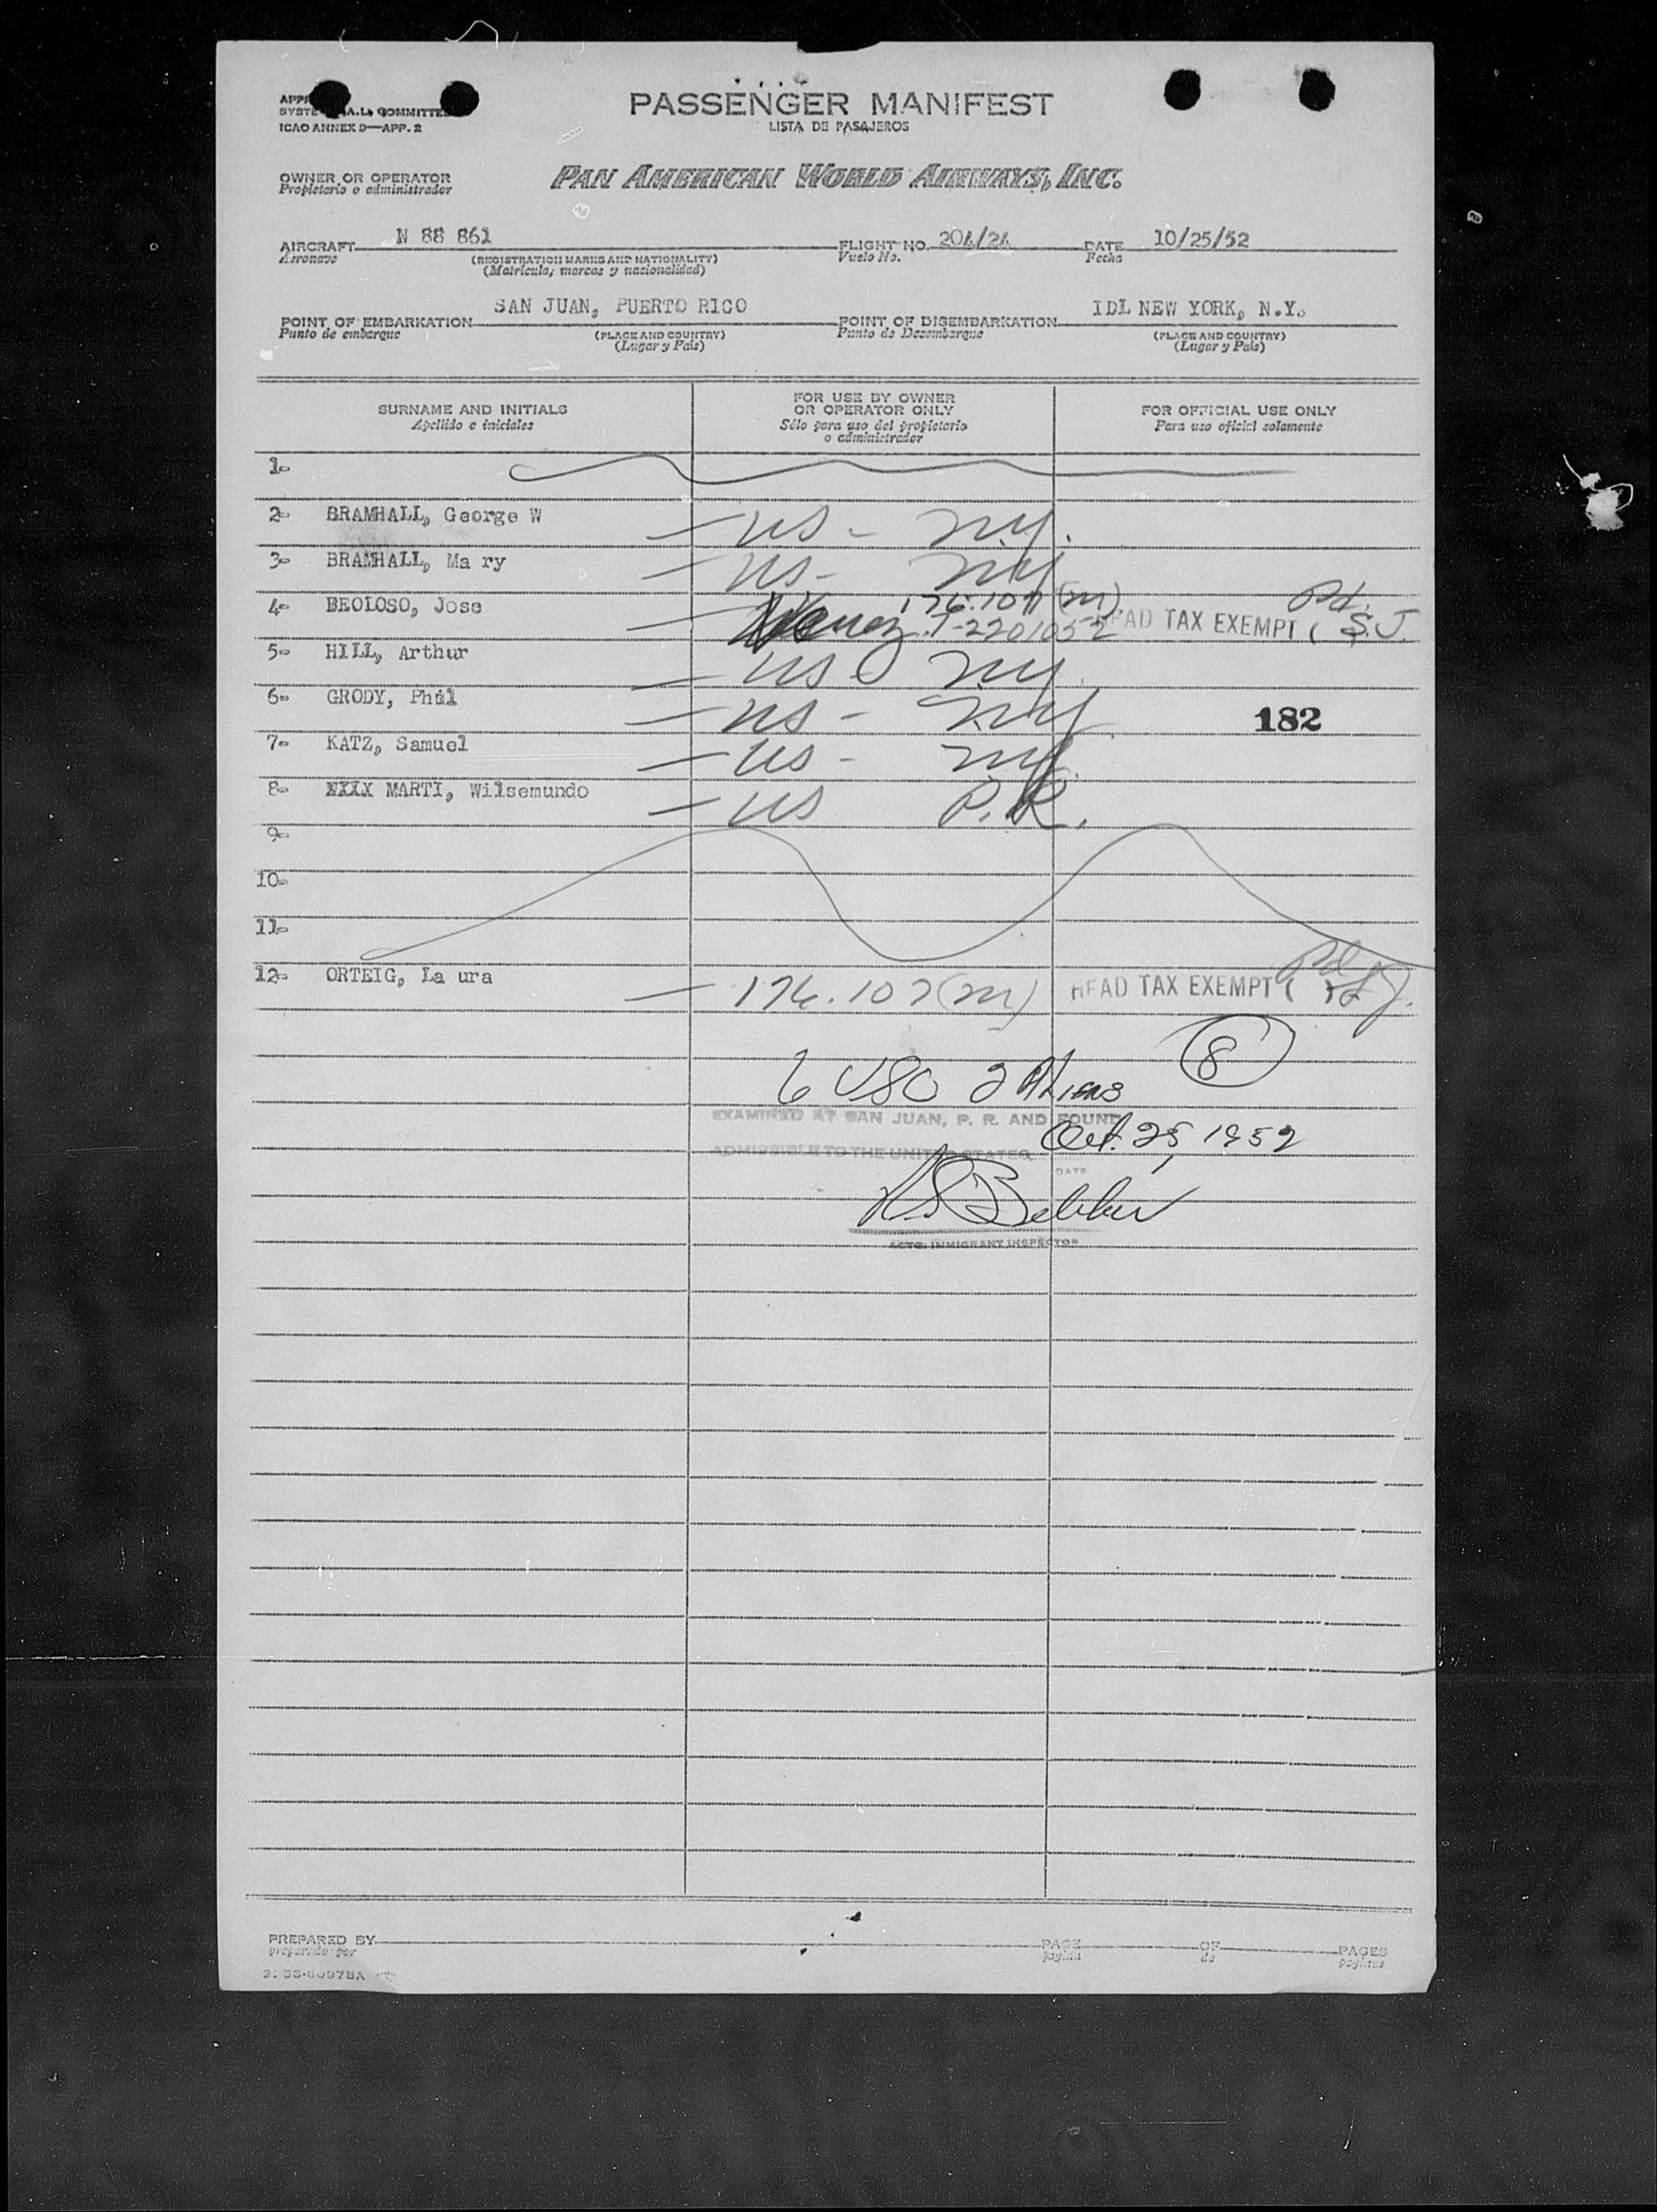 SYSTE A.L. COMMITTEE
ICAO ANNEX 9—APP. 2
PASSENGER MANIFEST
LISTA DE PASAJEROS
OWNER OR OPERATOR
Propietario o administrador
PAN AMERICAN WORLD AIRWAYS, INC.
AIRCRAFT N 88 861 FLIGHT NO. 204/24 DATE 10/25/52
Aeronave (REGISTRATION MARKS AND NATIONALITY) Vuelo No. Fecha
(Matricula, marcas y nacionalidad)
POINT OF EMBARKATION SAN JUAN, PUERTO RICO POINT OF DISEMBARKATION IDL NEW YORK, N.Y.
Punto de embarque (PLACE AND COUNTRY) Punto de Desembarque (PLACE AND COUNTRY)
(Lugar y País) (Lugar y País)
SURNAME AND INITIALS
Apellido e iniciales
FOR USE BY OWNER
OR OPERATOR ONLY
Sólo para uso del propietario
o administrador
FOR OFFICIAL USE ONLY
Para uso oficial solamente
1-
2- BRAMHALL, George W — US - NY.
3- BRAMHALL, Ma ry — US - NY
4- BEOLOSO, Jose — 176.107 (M) Pd.
T-2201052 HEAD TAX EXEMPT ( S.J.
5- HILL, Arthur — US NY.
6- GRODY, Phil — US - NY 182
7- KATZ, Samuel — US - NY.
8- MARTI, Wilsemundo — US P.R.
9-
10-
11-
12- ORTEIG, La ura — 176.107(M) HEAD TAX EXEMPT ( Pd
8
6 USC 2 Aliens
EXAMINED AT SAN JUAN, P. R. AND FOUND
Oct. 25, 1952
ADMISSIBLE TO THE UNITED STATES.
DATE
ACTG. IMMIGRANT INSPECTOR
PREPARED BY PAGE OF PAGES
preparado por página de páginas